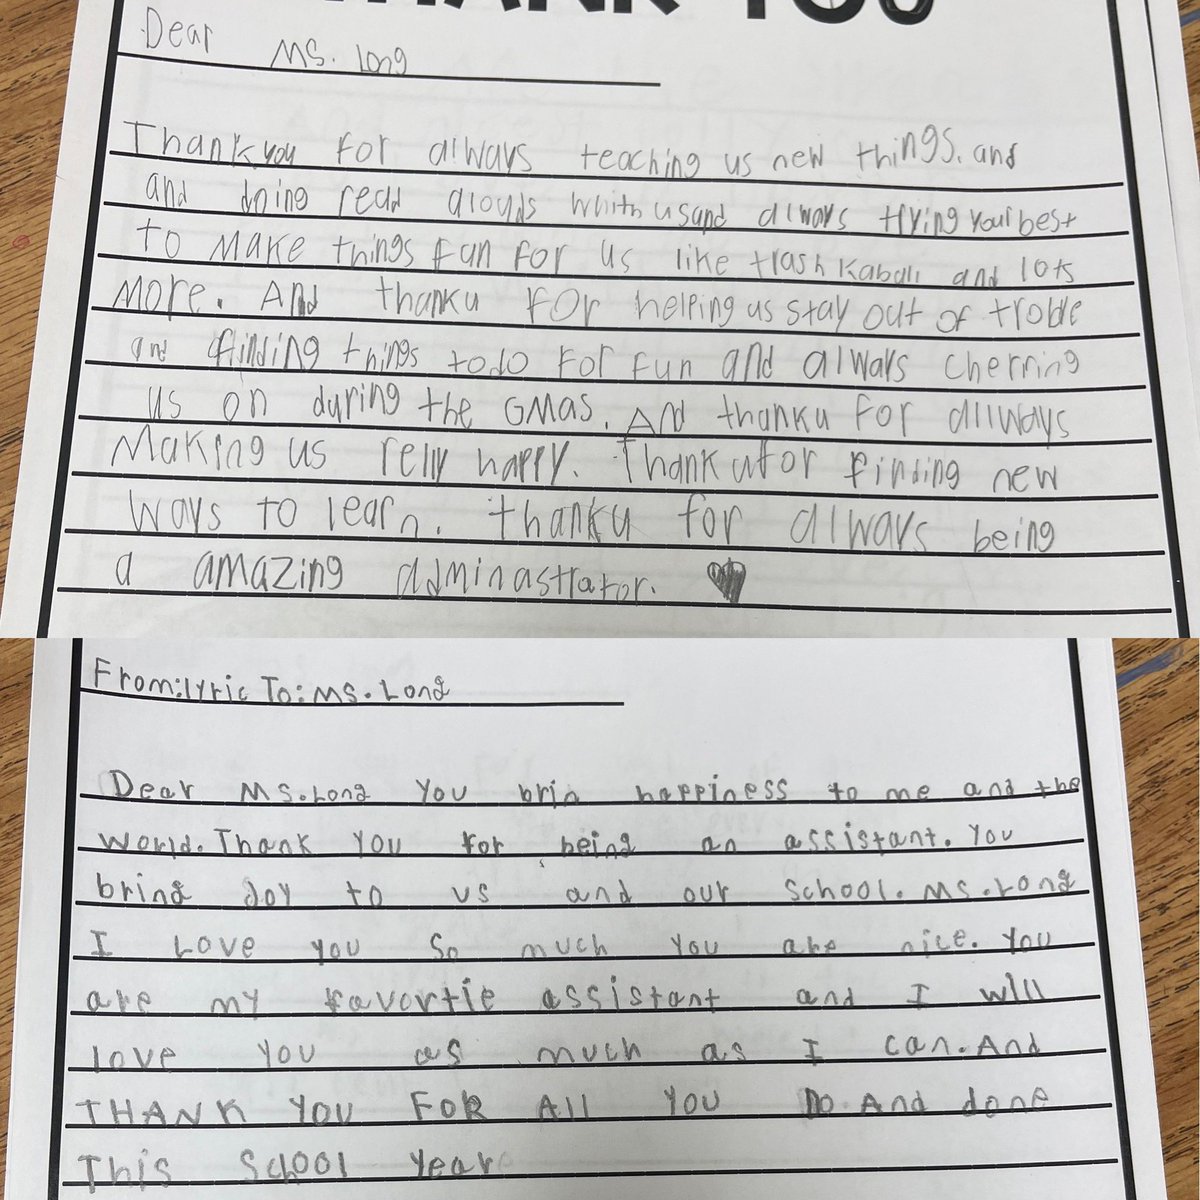 THANK YOU
Dear Ms. Long
Thank you for always teaching us new things. and
and doing read alouds whith us and always trying your best
to make things fun for us like trash kaball and lots
more. And thank u for helping us stay out of troble
and finding things to do for fun and always cherring
us on during the GMas. And thank u for allways
Making us relly happy. Thank u for finding new
ways to learn. thank u for always being
a amazing adminastrator.
From: lyric To: Ms. Long
Dear Ms. Long You brin happiness to me and the
world. Thank you for being an assistant. You
bring joy to us and our school. Ms. Long
I Love you so much you are nice. You
are my favortie assistant and I will
love you as much as I can. And
THANK YOU FOR All YOU DO And done
This School year